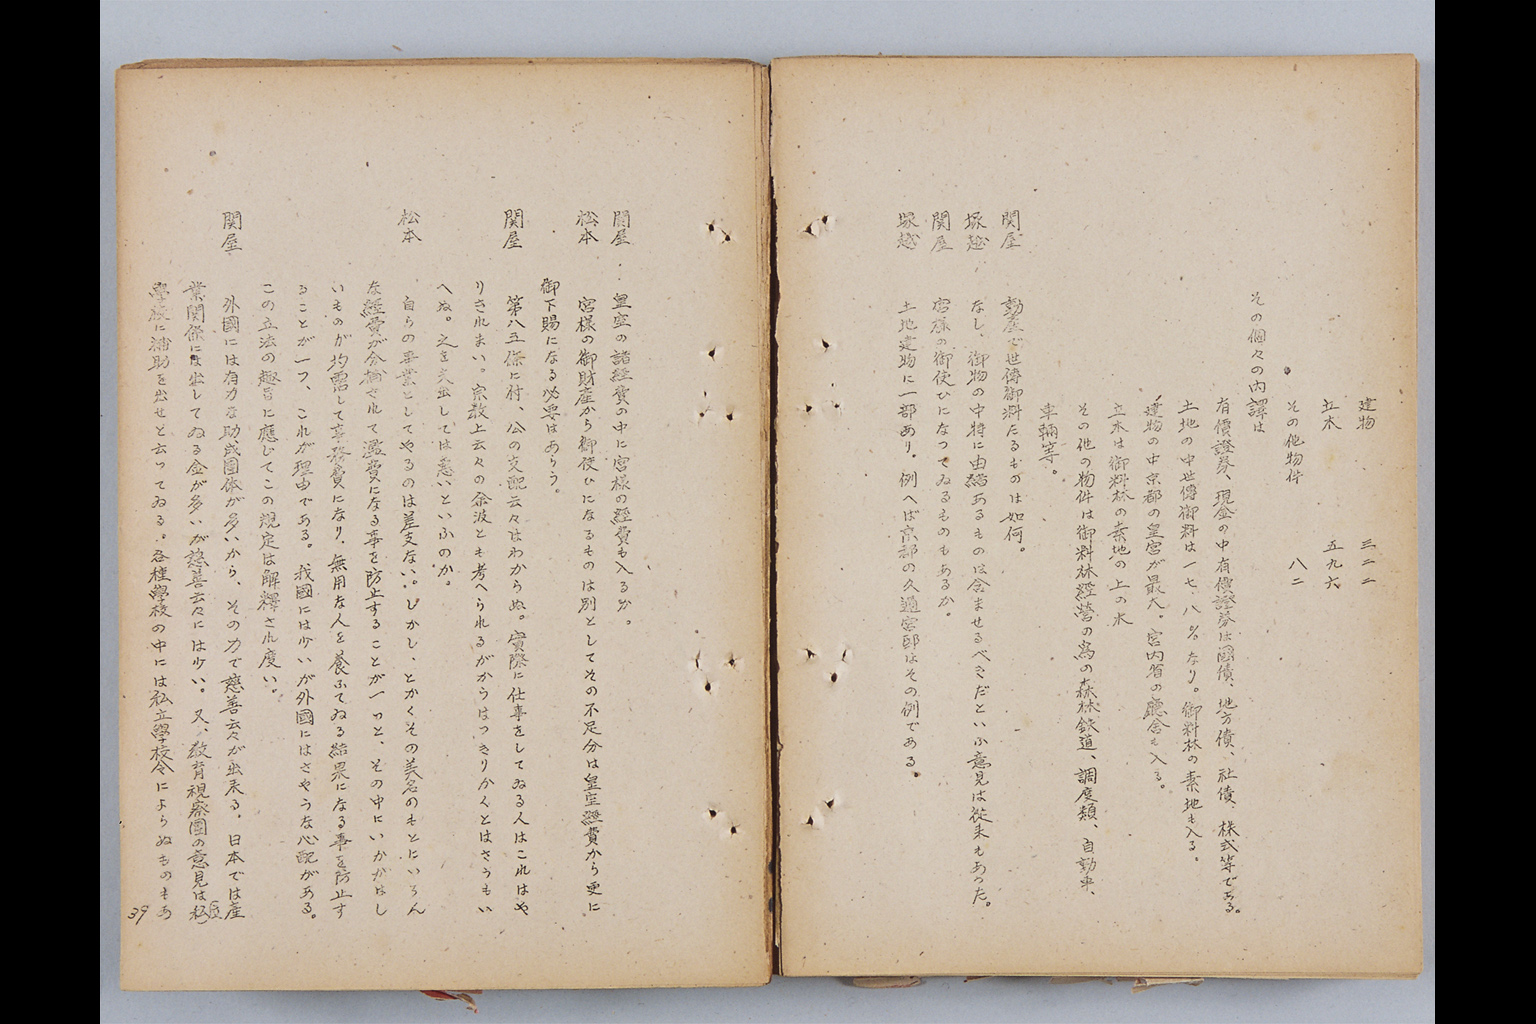 建物 三二二
立木 五九六
その他物件 八二
その個々の内譯は
有價證券、現金の中有價證券は國債、地方債、社債、株式等である。
土地の中世傳御料は一七、八%なり。御料林の素地も入る。
建物の中京都の皇宮が最大。宮内省の廳舎も入る。
立木は御料林の素地の上の木
その他の物件は御料林經營の爲の森林鉄道、調度類、自動車、
車輛等。
関屋 動産で世傳御料たるものは如何。
塚越 なし、御物の中特に由緒あるものは含ませるべきだといふ意見は從来もあった。
関屋 宮様の御使ひになってゐるものもあるか。
塚越 土地建物に一部あり。例へば京都の久邇宮邸はその例である。
関屋 皇室の諸經費の中に宮様の經費も入るか。
松本 宮様の御財産から御使ひになるものは別としてその不足分は皇室經費から更に
御下賜になる必要はあらう。
関屋 第八五條に付、公の支配云々はわからぬ。實際に仕事をしてゐる人はこれはや
りきれまい。宗教上云々の余波とも考へられるがからはっきりかくとはさうもい
へぬ。之を支出しては悪いといふのか。
松本 自らの事業としてやるのは差支ない。しかし、とかくその美名のもとにいろん
な經費が分捕されて濫費になる事を防止することが一つと、その中にいかがはし
いものが均霑して事務費になり、無用な人を養ふてゐる結果になる事を防止す
ることが一つ、これが理由である。我國には少いが外國にはさやうな心配がある。
この立法の趣旨に應じてこの規定は解釋され度い。
関屋 外國には有力な助成團体が多いから、その力で慈善云々が出来る。日本では産
業関係には出してゐる金が多いが慈善云々には少い。又、教育視察團の意見は私
學校に補助を出せと云ってゐる。各種學校の中には私立學校令によらぬものもあ
39